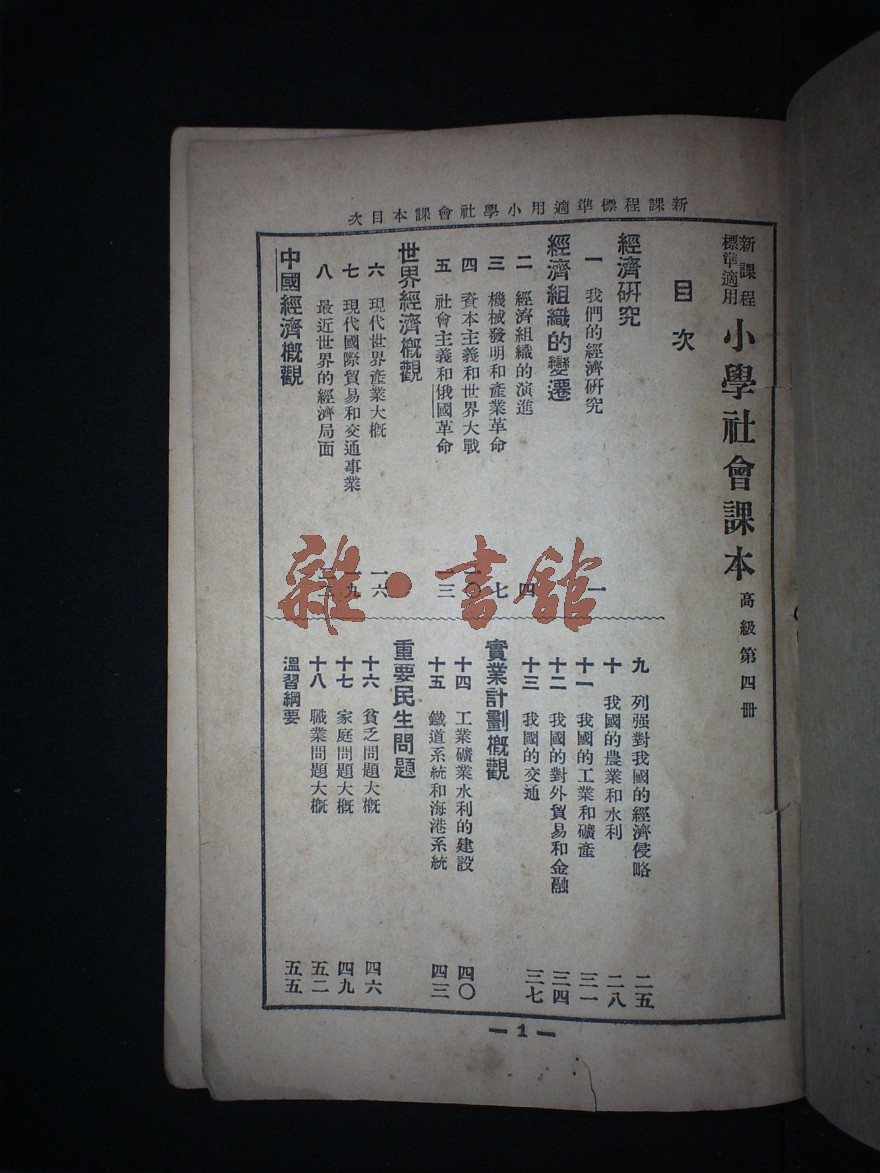 新課程標準適用小學社會課本目次
新課程標準適用 小學社會課本 高級第四冊
目次
經濟研究
一 我們的經濟研究 一
經濟組織的變遷
二 經濟組織的演進 四
三 機械發明和產業革命 七
四 資本主義和世界大戰 一〇
五 社會主義和俄國革命 一三
世界經濟概觀
六 現代世界產業大概 一六
七 現代國際貿易和交通事業 一九
八 最近世界的經濟局面
中國經濟概觀
九 列强對我國的經濟侵略 二五
十 我國的農業和水利 二八
十一 我國的工業和礦產 三一
十二 我國的對外貿易和金融 三四
十三 我國的交通 三七
實業計劃概觀
十四 工業礦業水利的建設 四〇
十五 鐵道系統和海港系統 四三
重要民生問題
十六 貧乏問題大概 四六
十七 家庭問題大概 四九
十八 職業問題大概 五二
溫習綱要 五五
— 1 —
雜·書館